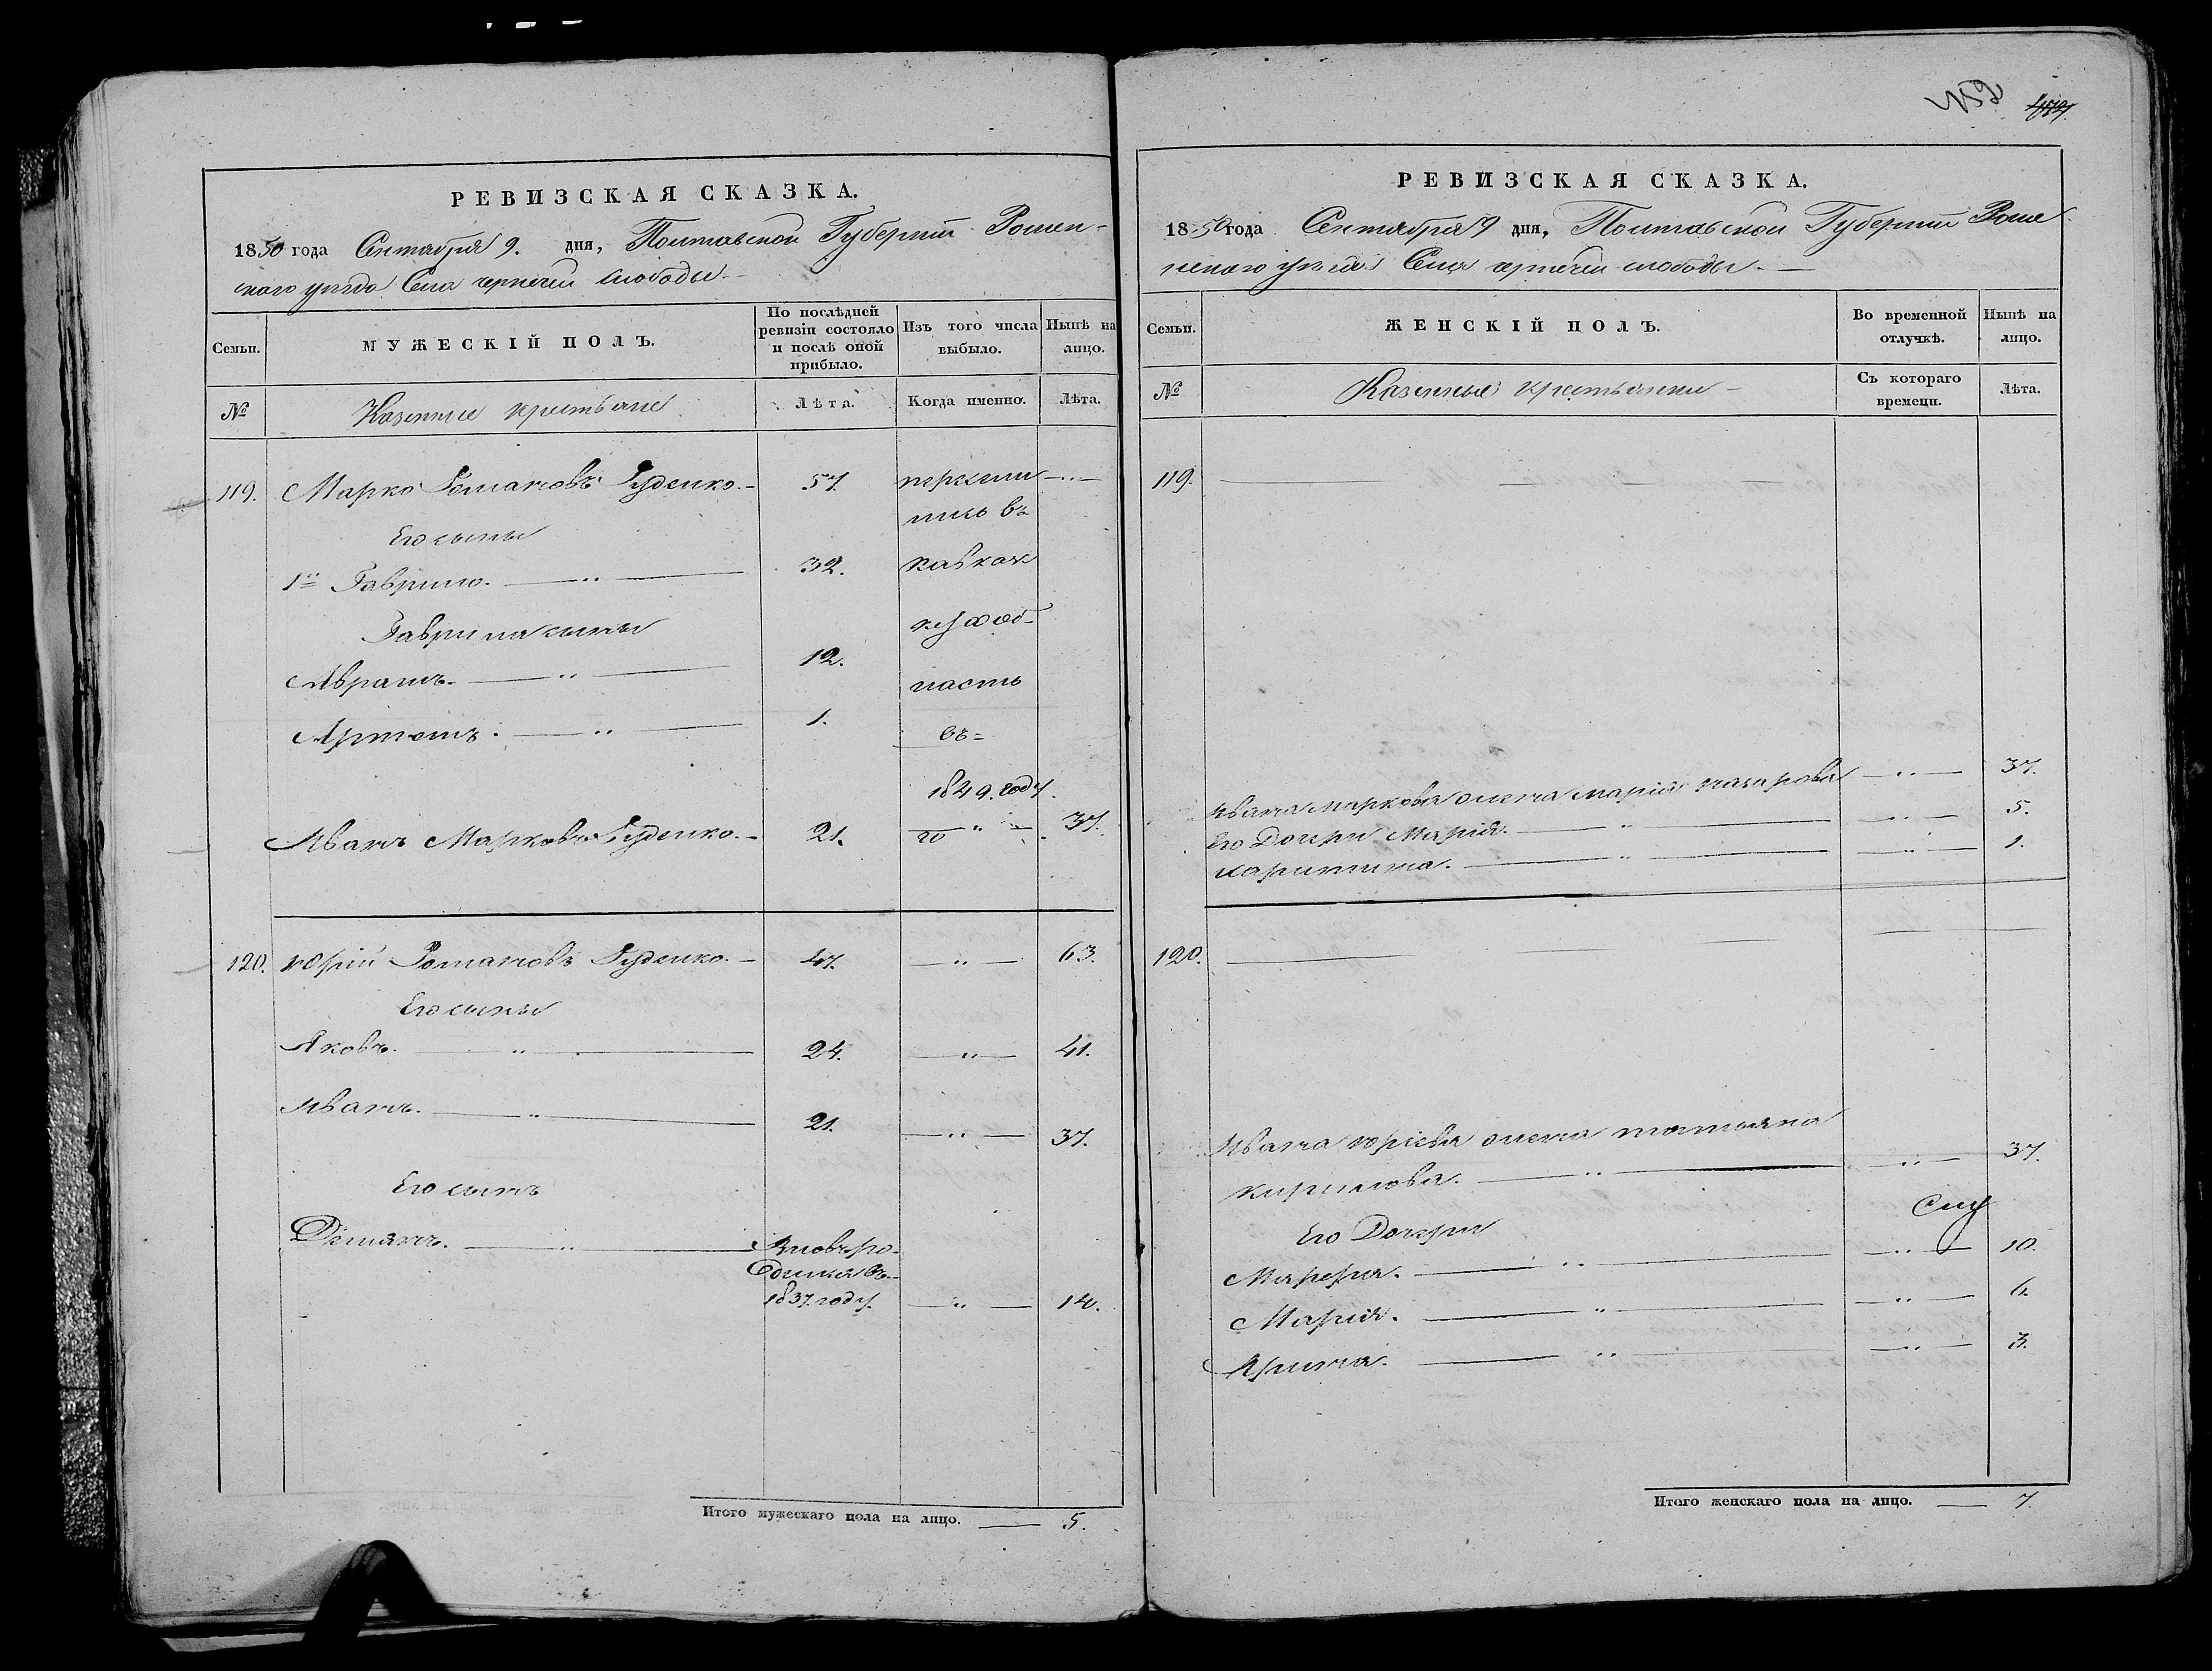 РЕВИЗСКАЯ СКАЗКА.
1850 года Сентября 9. дня, Полтавской Губернии Ромен-
ского уезда Села чернечей слободы
Семьи.
МУЖЕСКІЙ ПОЛЪ.
По послѣдней ревизіи состояло и послѣ оной прибыло.
Изъ того числа выбыло.
Нынѣ на лицо.
№
Казенные крестьяне
Лѣта.
Когда именно.
Лѣта.
119. Марко Романовъ Гуденко. 57. пересели
лись въ
Его сыны
1й Гаврило. 32. кавказ
Гаврила сыны скую об-
Аврамъ. 12. ласть
Артемъ. 1. въ
1849. году.
Иванъ Марковъ Гуденко. 21. 37.
120. Юрій Романовъ Гуденко. 47. 63.
Его сыны
Яковъ. 24. 41.
Иванъ. 21. 37.
Его сынъ
Демянъ. Вновь ро-
дился въ
1837. году. 14.
Итого мужескаго пола на лицо. 5.
452
РЕВИЗСКАЯ СКАЗКА.
1850 года Сентября 9 дня, Полтавской Губернии Роме
нского уезда Села чернечей слободы.
Семьи.
ЖЕНСКІЙ ПОЛЪ.
Во временной отлучкѣ.
Нынѣ на лицо.
№
Казенные крестьянки
Съ котораго времени.
Лѣта.
119.
Ивана Маркова жена Марія Назарова 37.
Его Дочери Марія. 5.
Харитина. 1.
120.
Ивана Юріева жена татьяна
кирилова. 37.
Его Дочери
Марфа. 10.
Марія. 6.
Арина. 3.
Итого женскаго пола на лицо. 7.